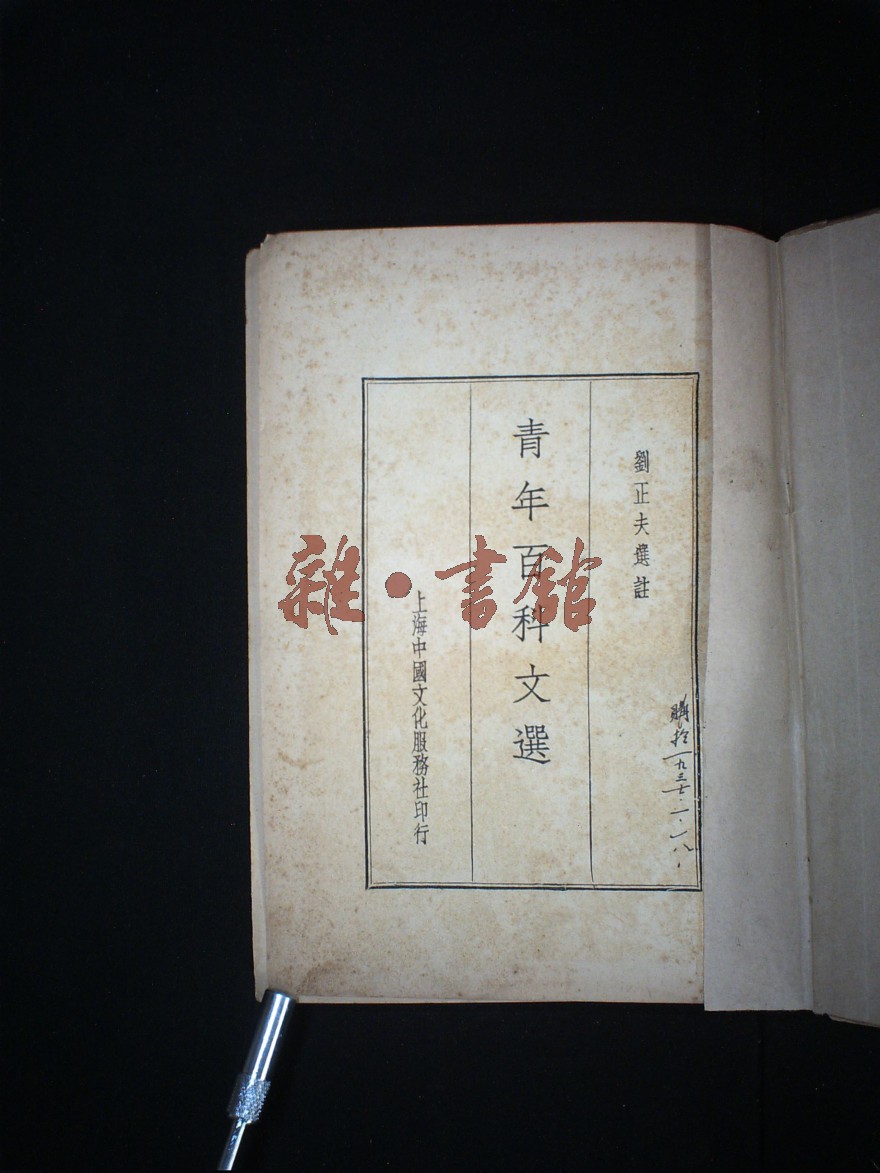 劉正夫選註
青年百科文選
上海中國文化服務社印行
購於一九三七.一.一八.
雜·書館